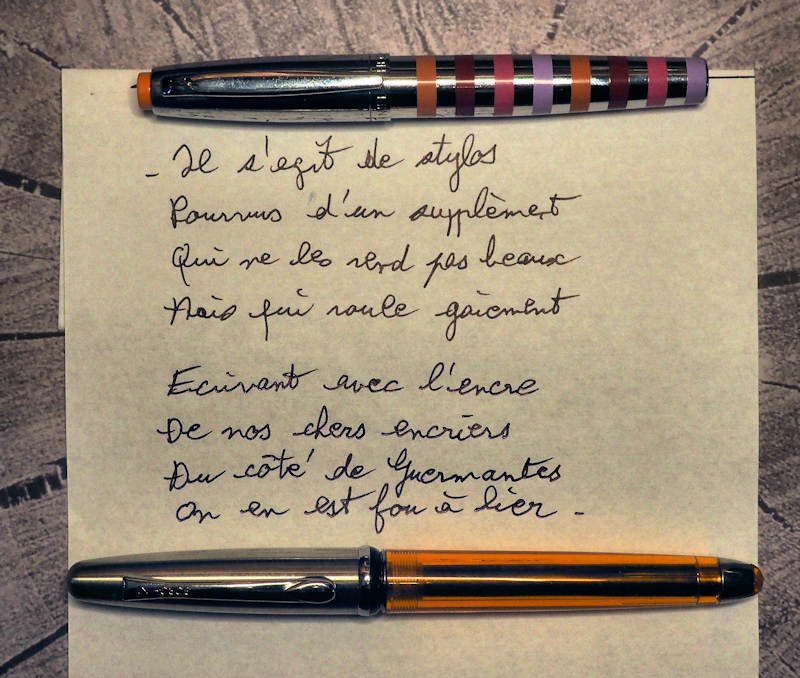 - Il s'agit de stylos
Pourvus d'un supplèment
Qui ne les rend pas beaux
Mais qui roule gaiement
Ecrivant avec l'encre
De nos chers encriers
Du côté de Guermantes
On en est fou à lier -